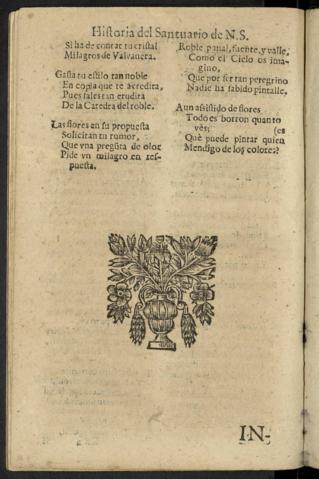 Historia del Santuario de N.S.
Si ha de contar tu cristal
Milagros de Valvanera.
Gasta tu estilo tan noble
En copia que te acredita,
Pues sales tan erudita
De la Catedra del roble.
Las flores en su propuesta
Solicitan tu rumor,
Que vna pregũta de olor
Pide vn milagro en res-
puesta.
Roble, panal, fuente, y valle,
Como el Cielo os ima-
gino,
Que por ser tan peregrino
Nadie ha sabido pintalle.
Aun asistido de flores
Todo es borron quanto
vès; (es
Què puede pintar quien
Mendigo de los colores?
IN-